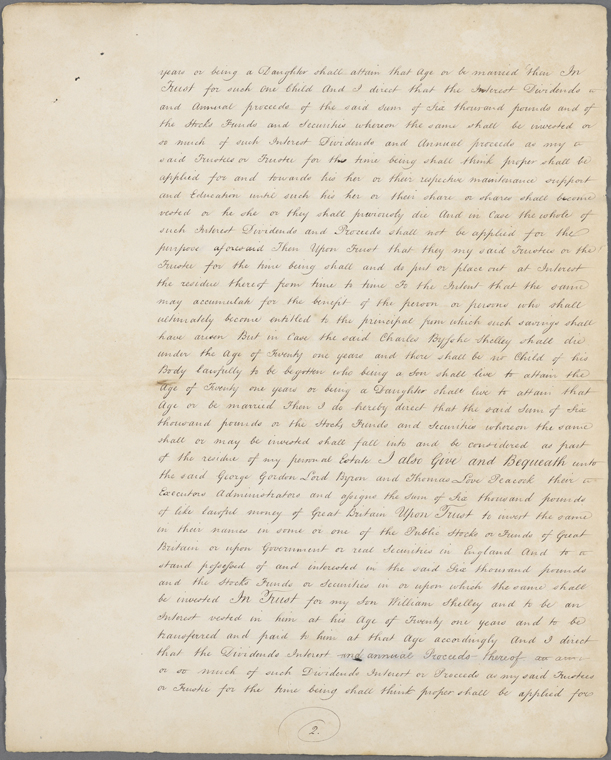 years or being a Daughter shall attain that Age or be married then In
Trust for such One Child And I direct that the Interest Dividends
and Annual proceeds of the said Sum of Six thousand pounds and of
the Stocks Funds and Securities whereon the same shall be invested or
so much of such Interest Dividends and Annual proceeds as my
said Trustees or Trustee for the time being shall think proper shall be
applied for and towards his her or their respective maintenance support
and Education until such his her or their share or shares shall become
vested or he she or they shall previously die And in Case the whole of
such Interest Dividends and Proceeds shall not be applied for the
purpose aforesaid Then Upon Trust that they my said Trustees or the
Trustee for the time being shall and do put or place out at Interest
the residue thereof from time to time To the Intent that the same
may accumulate for the benefit of the person or persons who shall
ultimately become entitled to the principal from which such savings shall
have arisen But in Case the said Charles Bysshe Shelley shall die
under the Age of Twenty one years and there shall be no Child of his
Body lawfully to be begotten who being a Son shall live to attain the
Age of Twenty one years or being a Daughter shall live to attain that
Age or be married Then I do hereby direct that the said Sum of Six
thousand pounds or the Stocks Funds and Securities whereon the same
shall or may be invested shall fall into and be considered as part
of the residue of my personal Estate I also Give and Bequeath unto
the said George Gordon Lord Byron and Thomas Love Peacock their
Executors Administrators and assigns the Sum of Six thousand pounds
of like lawful money of Great Britain Upon Trust to invest the same
in their names in some or one of the Public Stocks or Funds of Great
Britain or upon Government or real Securities in England And to
stand possessed of and interested in the said Six thousand pounds
and the Stocks Funds or Securities in or upon which the same shall
be invested In Trust for my Son William Shelley and to be an
Interest vested in him at his Age of Twenty one years and to be
transferred and paid to him at that Age accordingly And I direct
that the Dividends Interest and annual Proceeds thereof
or so much of such Dividends Interest or Proceeds as my said Trustees
or Trustee for the time being shall think proper shall be applied for
2.